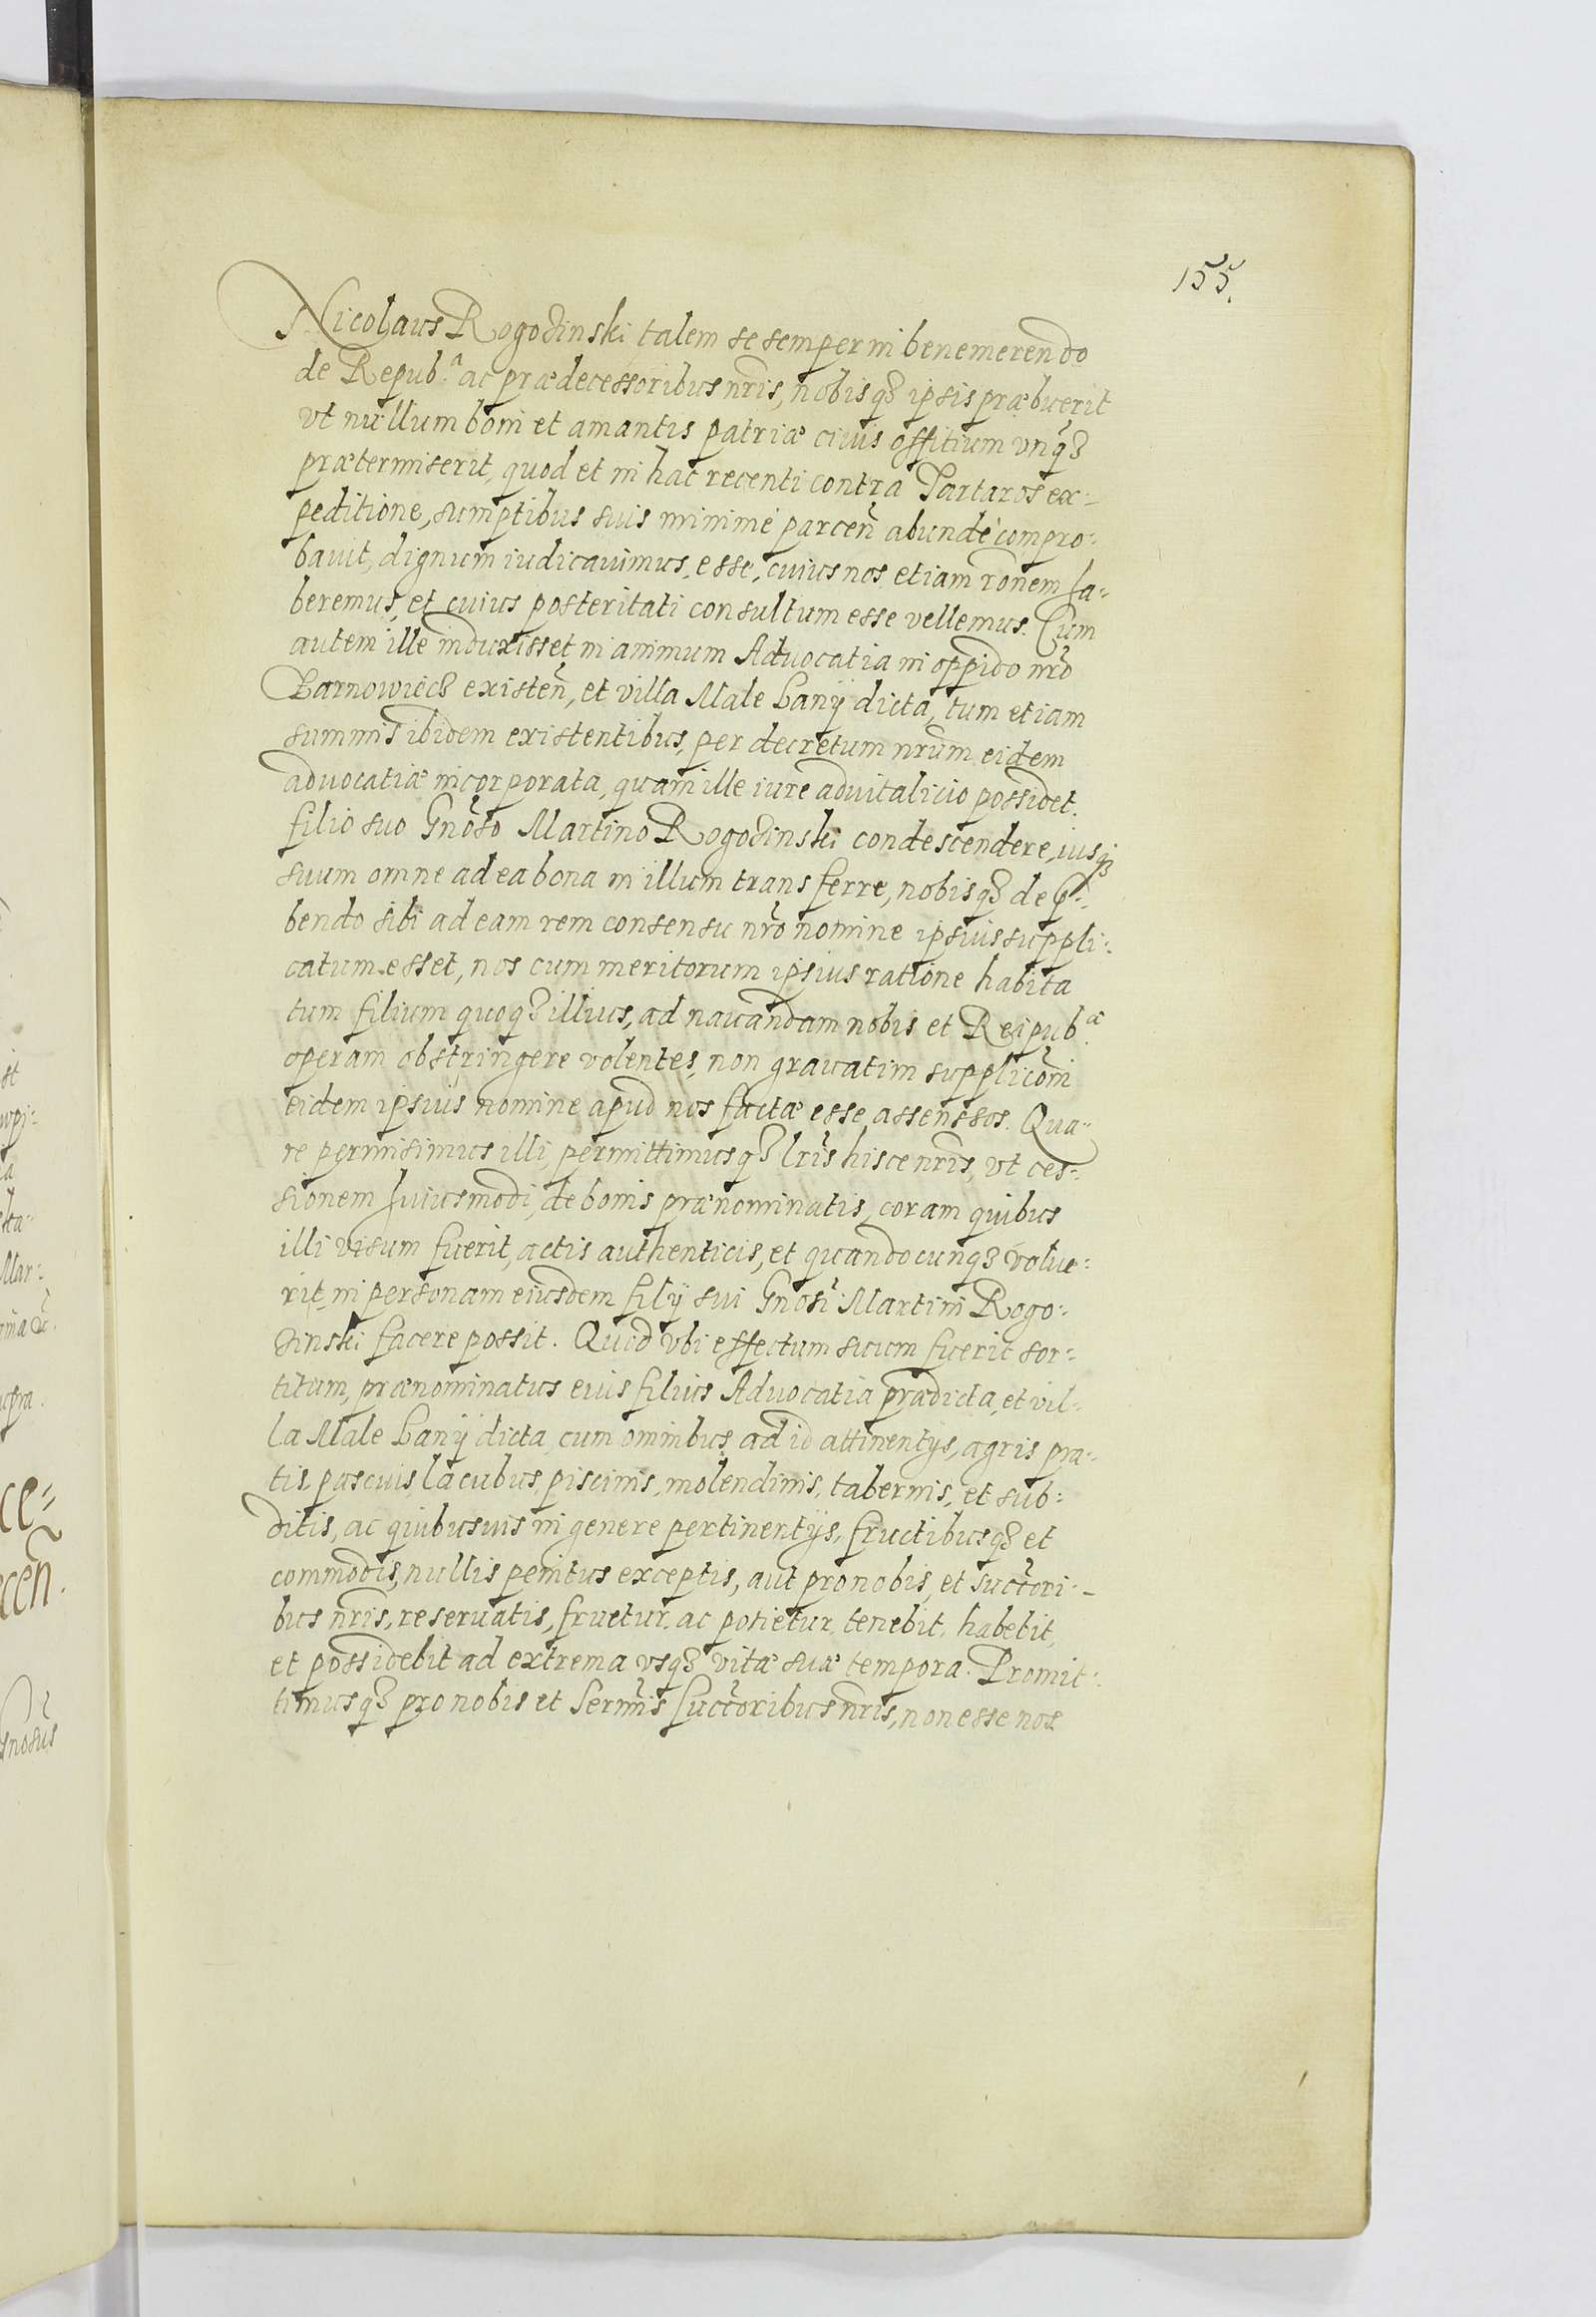 155.
Nicolaus Rogodinski talem se semper in benemerendo
de Repub.ᵃ ac prædecessoribus nr̃is, nobisqȝ ipsis præbuerit
vt nullum boni et amantis patriæ ciuis offitium vnq̃ȝ
prætermiserit, quod et in hac recenti contra Tartaros ex=
peditione, sumptibus suis minimè parceñ abundè compro=
bauit, dignum iudicauimus, esse, cuius nos etiam rõnem ha=
beremus, et cuius posteritati consultum esse vellemus. Cum
autem ille induxisset in animum Aduocatia in oppido nrõ
Barnowiecȝ existeñ, et villa Male Lanÿ dicta, tum etiam
summis ibidem existentibus, per decretum nr̃um eidem
aduocatiæ incorporata, quam ille iure aduitalicio possidet.
filio suo Gnõso Martino Rogodinski condescendere, iusqȝ
suum omne ad ea bona in illum transferre, nobisqȝ de p̃=
bendo sibi ad eam rem consensu nrõ nomine ipsius suppli=
catum esset, nos cum meritorum ipsius ratione habita
tum filium quoqȝ illius, ad nauandam nobis et Reipub.æ
operam obstringere volentes, non grauatim supplicõni
eidem ipsius nomine apud nos factæ esse assenssos. Qua=
re permisimus illi, permittimusqȝ lr̃is hisce nr̃is, vt ces=
sionem huiusmodi, de bonis prænominatis, coram quibus
illi visum fuerit, actis authenticis, et quandocunqȝ volue=
rit, in personam eiusdem filÿ sui Gnõsi Martini Rogo=
dinski facere possit. Quod vbi effectum suum fuerit sor=
titum, prænominatus eius filius Aduocatia prædicta, et vil=
la Male Lanÿ dicta, cum omnibus ad id attinentÿs, agris pra=
tis, pascuis, lacubus, piscinis, molendinis, tabernis, et sub=
ditis, ac quibusuis in genere pertinentÿs, fructibusqȝ et
commodis, nullis penitus exceptis, aut pro nobis, et succ̃ori=
bus nr̃is, reseruatis, fruetur, ac potietur, tenebit, habebit,
et possidebit ad extrema vsqȝ vitæ suæ tempora. Promit=
timusqȝ pro nobis et Serm̃is succ̃oribus nr̃is, non esse nos